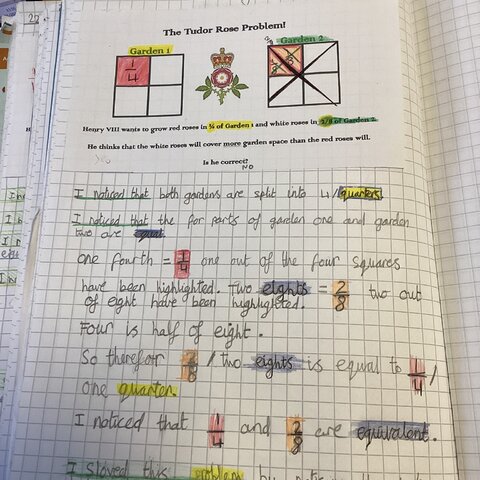 22
The Tudor Rose Problem!
Garden 1
Garden 2
NO
1/4
1/8 1/8
Henry VIII wants to grow red roses in ¼ of Garden 1 and white roses in 2/8 of Garden 2.
He thinks that the white roses will cover more garden space than the red roses will.
Is he correct?
NO
I noticed that both gardens are split into 4/quarters
I noticed that the for parts of garden one and garden
two are equal
one fourth = 1/4 one out of the four squares
have been highlighted. Two eights = 2/8 two out
of eight have been highlighted.
Four is half of eight.
So therfor 2/8 / two eights is equal to 1/4 /
one quarter.
I noticed that 1/4 and 2/8 are equivalent.
I sloved this problem by